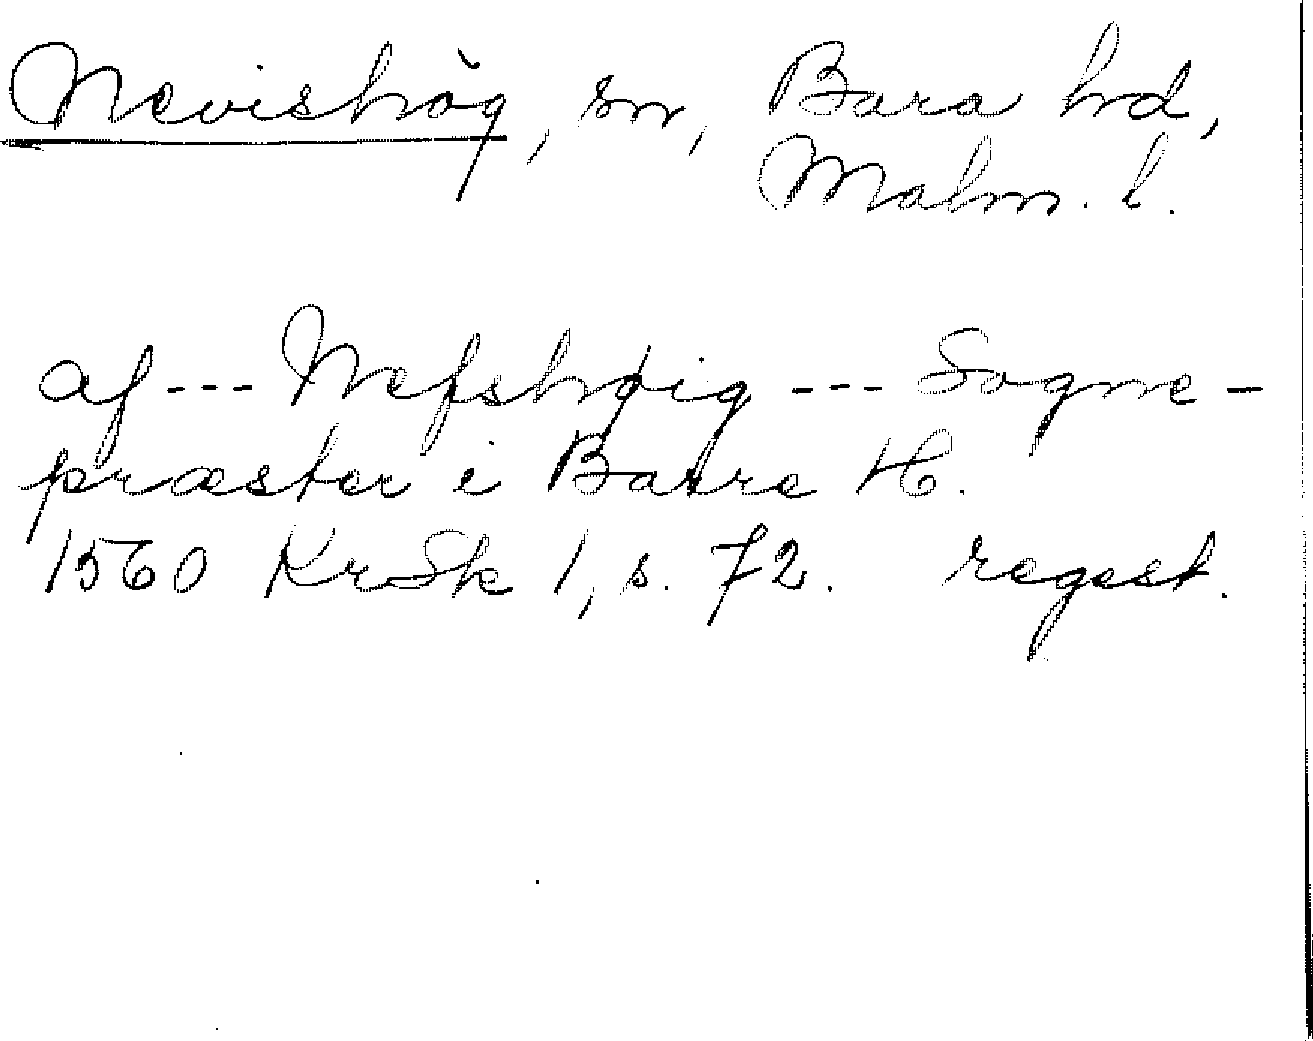 Nevishög, sn, Bara hd,
Malm. l.
af --- Nefshøig --- Sogne-
præster i Barre H.
1560 KrSk 1, s. 72. regest.